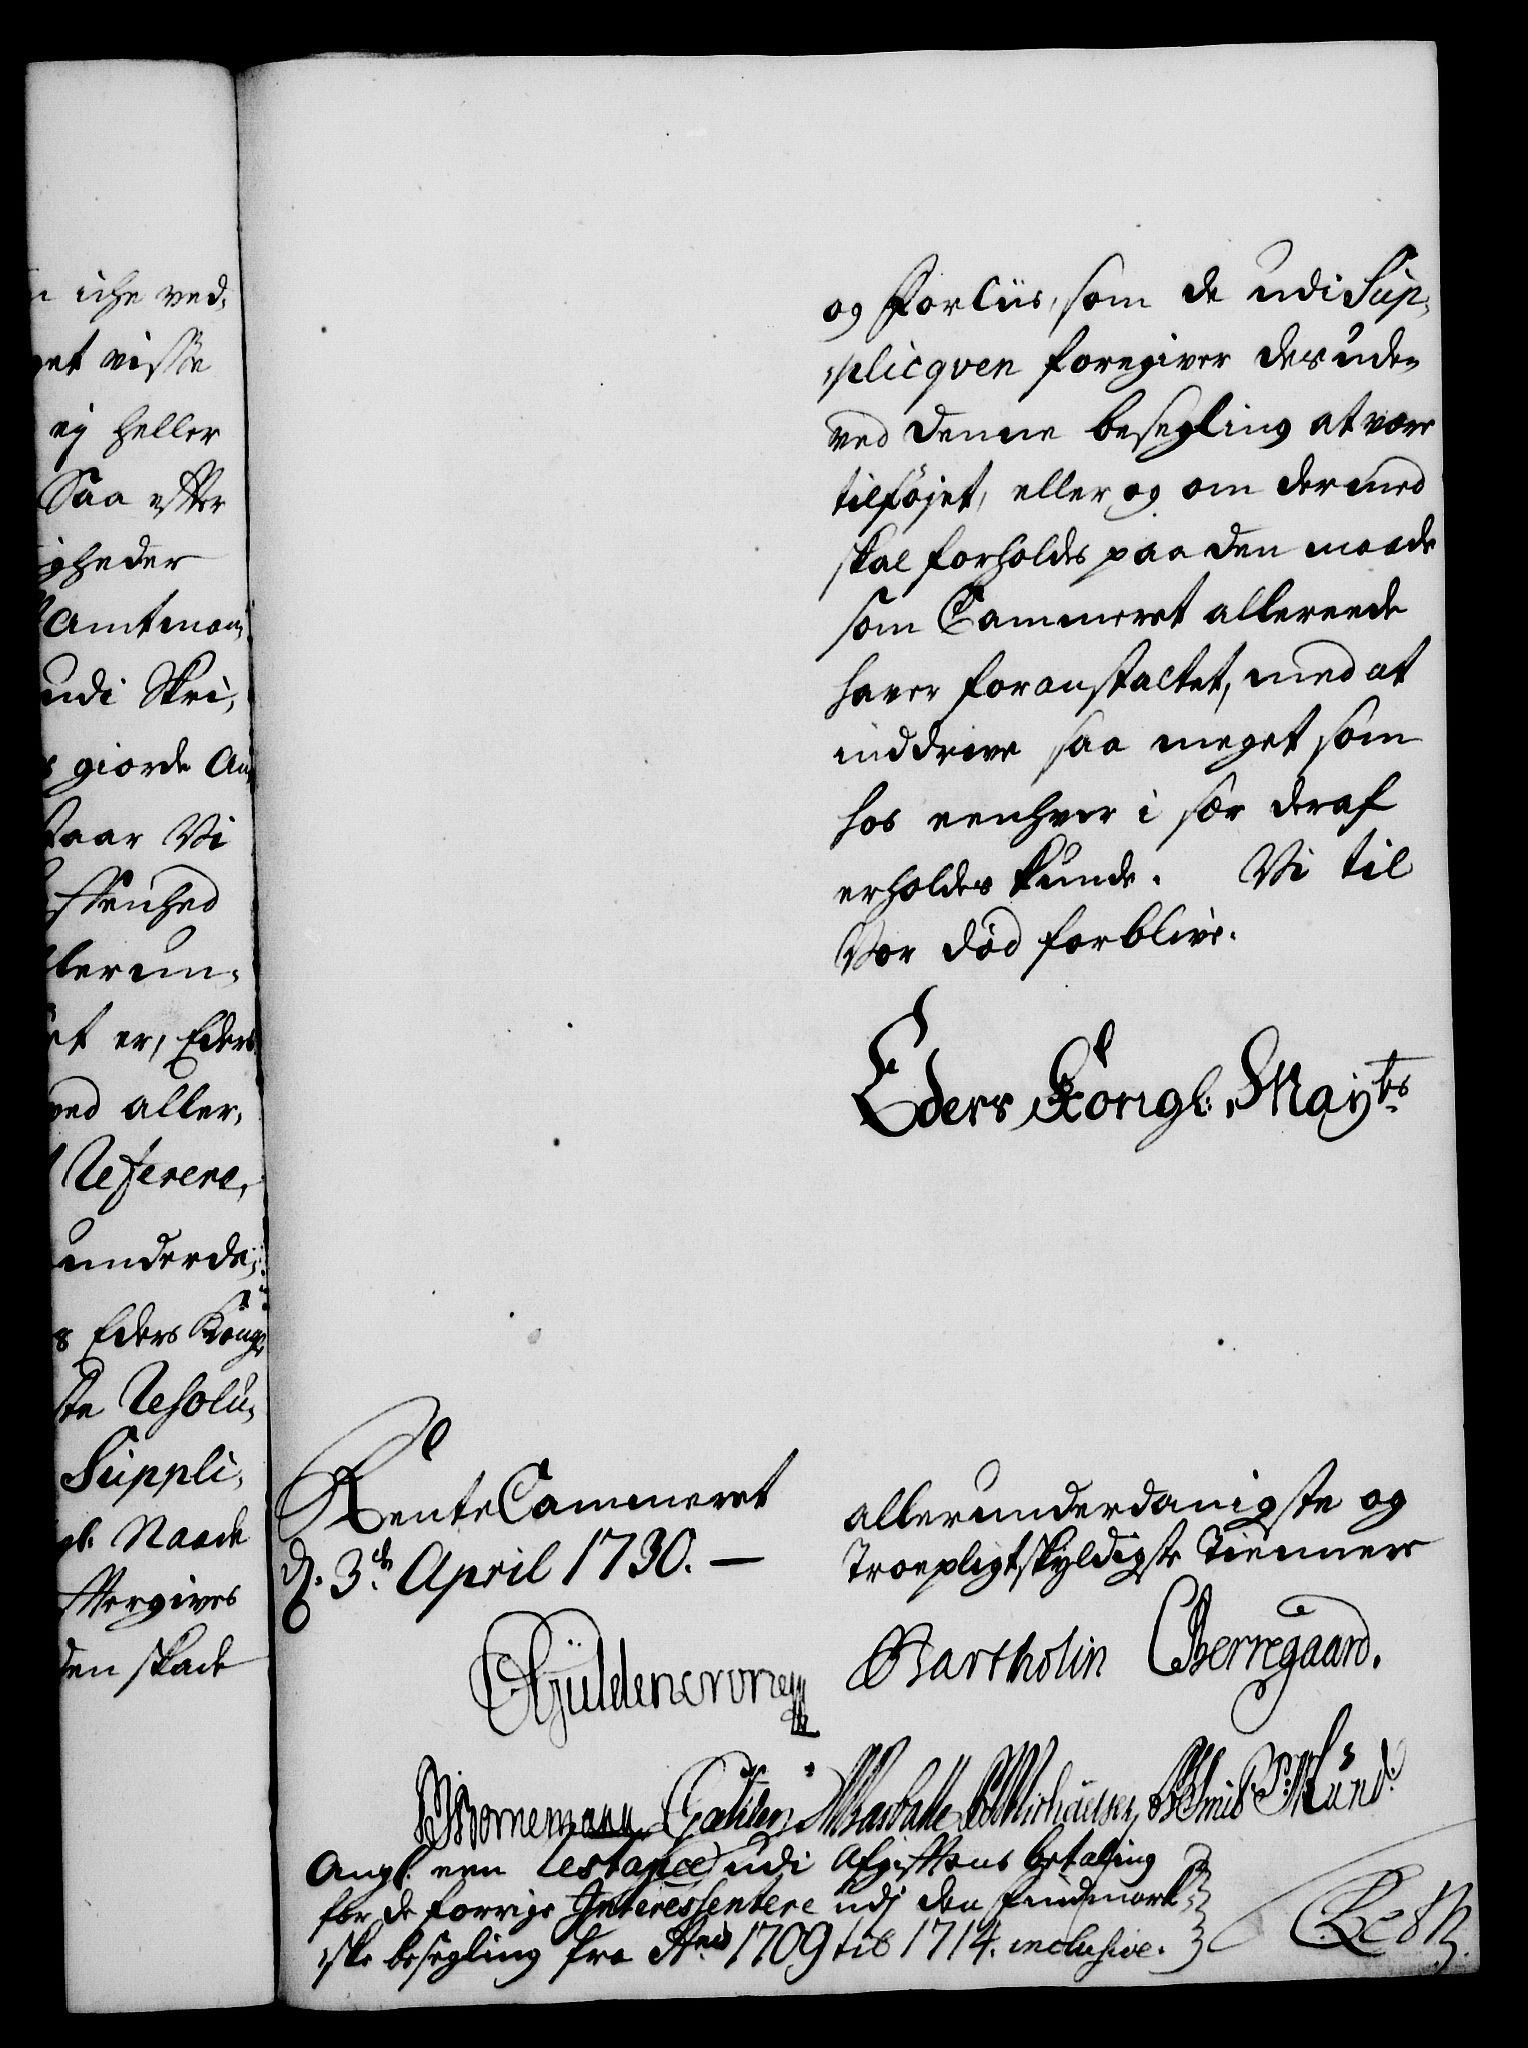 n iche ved,
get visse
ej heller
Saa efter
igheder
Amtman,
udi Skri,
s giorde An
staar Vi
ssenhed
llerun,
et er, Eders
ved aller,
Referere,
underda,
s Eders Kongl
ste Resolu,
Suppli,
gl. Naade
efftergives
den skade
og Forliis, som de udi Sup,
plicqven foregiver desuden
ved denne besegling at være
tilföjet, eller og om dermed
skal forholdes paa den maade
som Cammeret allereede
haver foranstaltet, med at
inddrive saa meget som
hos eenhver i sær deraf
erholdes kunde. Vi til
Vor död forblive.
Eders Kongl: Mayts
RenteCammeret
d. 3de April 1730. —
allerunderdanigste og
Troepligtskyldigste Tiennere
CGüldencrone
Bartholin CBerregaard.
Bornemann
Angl. een Restance udi Afgifftens betaling
for de forrige Interessentere udj den Findmark-
ske besegling fra Ao 1709 til 1714. inclusive.